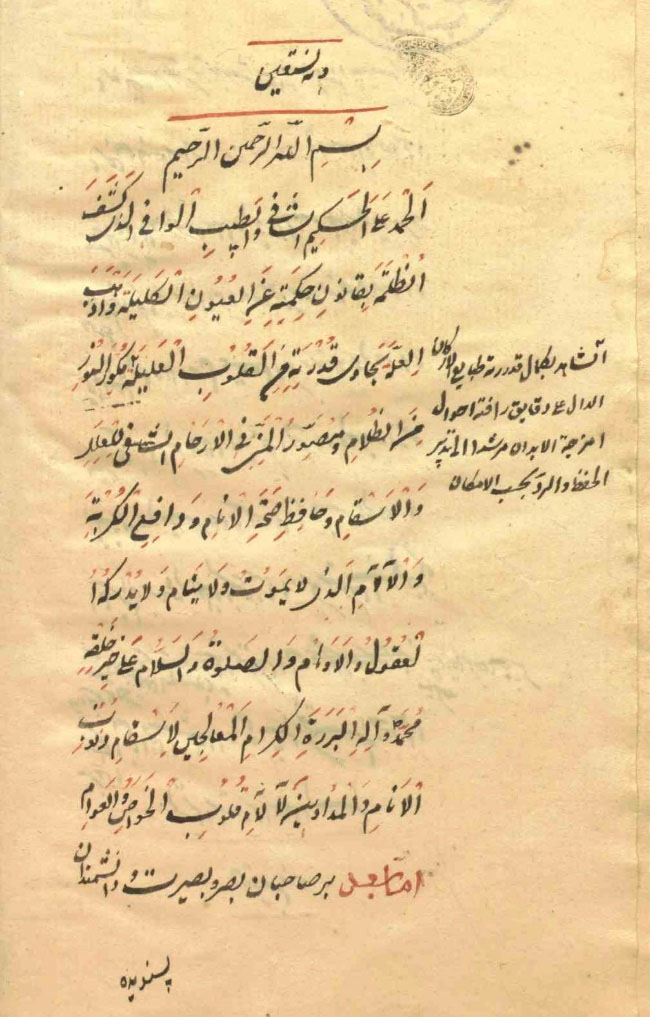 وبه نستعین
بِسْمِ اللّٰهِ الرَّحْمٰنِ الرَّحِیمِ
اَلْحَمْدُ عَلَی الْحَکِیمِ الشَّافِی وَالطَّبِیبِ الْوافی الَّذی کَشَفَ
الظُلْمَةَ بِقانُونِ حِکْمَتِهِ عَنِ الْعُیُونِ الْکَلِیلَةِ وَاَذْهَبَ
الْعِلَّةَ بِحاوی قُدْرَتِهِ مِنَ الْقُلُوبِ الْعَلِیلَةِ مُکَوِّرِ النُّورِ
مِنَ الظَّلامِ وَمُصَوِّرِ فی الاَرْحامِ الشَّافی لِلْعِلَلِ
وَالْاَسْقامِ وَحَافِظِ صِحَّةِ الاَنامِ وَدافِعِ الْکُرْبَةِ
وَالْآلامِ الَّذی لایَمُوتُ وَلایَنام وَلایُدْرِکُهُ ا
لْعُقُولُ وَالاَوْهام وَالصَلوةُ وَالسَّلام عَلی خَیْرِ خَلْقِهِ
مُحَمَّدٍ وَآلِهِ الْبَرَرَةِ الْکِرامِ الْمُعالِجِینَ لِاَسْقامِ
الاَنامِ وَالْمُداوِینَ لِآلامِ قُلُوبِ الْخَواصِّ وَالْعَوام
امّا بعد بر صاحبان بصر و بصیرت و دانشمندان
پسندیده
بکمال قدرته طبایع الارکان
الدال علی دقایق رافته احوال
امزجة الابدان مرشدا الی تدبیر
الحفظ والرد بحسب الامکان